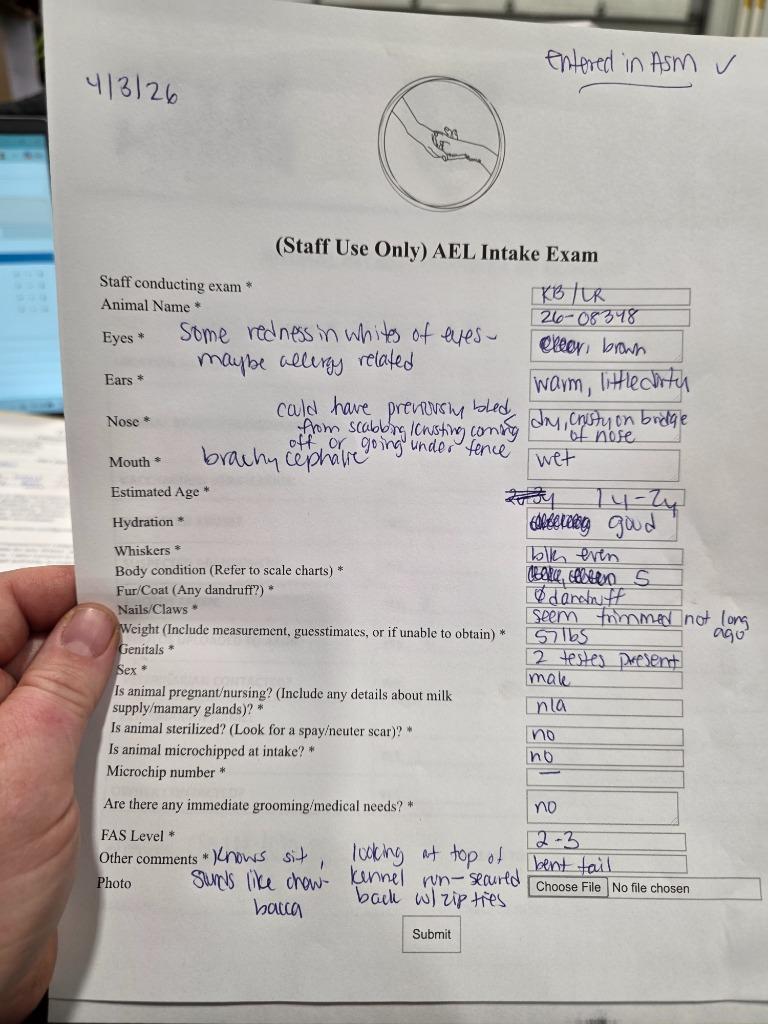 Entered in Asm ✓
4/3/26
(Staff Use Only) AEL Intake Exam
Staff conducting exam * KB/LR
Animal Name * 26-08348
Eyes * Some redness in whites of eyes - clear, brown
maybe allergy related
Ears * warm, little dirty
could have previously bled
Nose * from scabbing/crusting coming dry, crusty on bridge
off or going under fence of nose
Mouth * brachycephalic wet
Estimated Age * 1y-2y
Hydration * good
Whiskers * blk, even
Body condition (Refer to scale charts) * 5
Fur/Coat (Any dandruff?) * Ø dandruff
Nails/Claws * seem trimmed not long
ago
Weight (Include measurement, guesstimates, or if unable to obtain) * 57lbs
Genitals * 2 testes present
Sex * male
Is animal pregnant/nursing? (Include any details about milk
supply/mamary glands)? * n/a
Is animal sterilized? (Look for a spay/neuter scar)? * no
Is animal microchipped at intake? * no
Microchip number * —
Are there any immediate grooming/medical needs? * no
FAS Level * 2-3
Other comments * Knows sit, looking at top of bent tail
Photo sounds like chew- kennel run - secured Choose File No file chosen
bacca back w/ zip ties
Submit